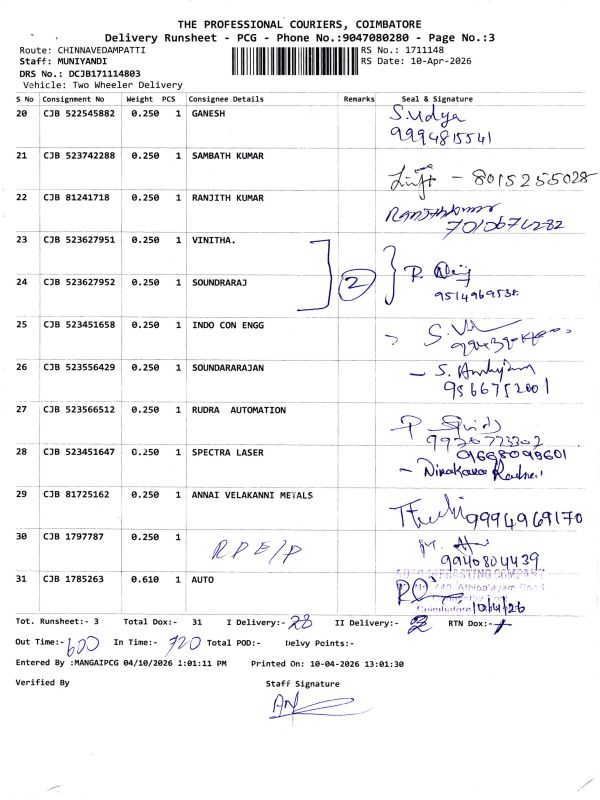 THE PROFESSIONAL COURIERS, COIMBATORE
Delivery Runsheet - PCG - Phone No.:9047080280 - Page No.:3
Route: CHINNAVEDAMPATTI RS No.: 1711148
Staff: MUNIYANDI RS Date: 10-Apr-2026
DRS No.: DCJB171114803
Vehicle: Two Wheeler Delivery
S No Consignment No Weight PCS Consignee Details Remarks Seal & Signature
20 CJB 522545882 0.250 1 GANESH S.Udya
9994815541
21 CJB 523742288 0.250 1 SAMBATH KUMAR
- 8015255028
22 CJB 81241718 0.250 1 RANJITH KUMAR Ranjithkumar
7010671282
23 CJB 523627951 0.250 1 VINITHA.
24 CJB 523627952 0.250 1 SOUNDRARAJ 2 P.
9514969538
25 CJB 523451658 0.250 1 INDO CON ENGG
26 CJB 523556429 0.250 1 SOUNDARARAJAN - S.
9566752001
27 CJB 523566512 0.250 1 RUDRA AUTOMATION
28 CJB 523451647 0.250 1 SPECTRA LASER 9668099601
29 CJB 81725162 0.250 1 ANNAI VELAKANNI METALS
9994969170
30 CJB 1797787 0.250 1
9940804439
31 CJB 1785263 0.610 1 AUTO
Coimbatore 10/4/26
Tot. Runsheet:- 3 Total Dox:- 31 I Delivery:- 28 II Delivery:- 2 RTN Dox:- 1
Out Time:- 600 In Time:- 720 Total POD:- Delvy Points:-
Entered By :MANGAIPCG 04/10/2026 1:01:11 PM Printed On: 10-04-2026 13:01:30
Verified By Staff Signature